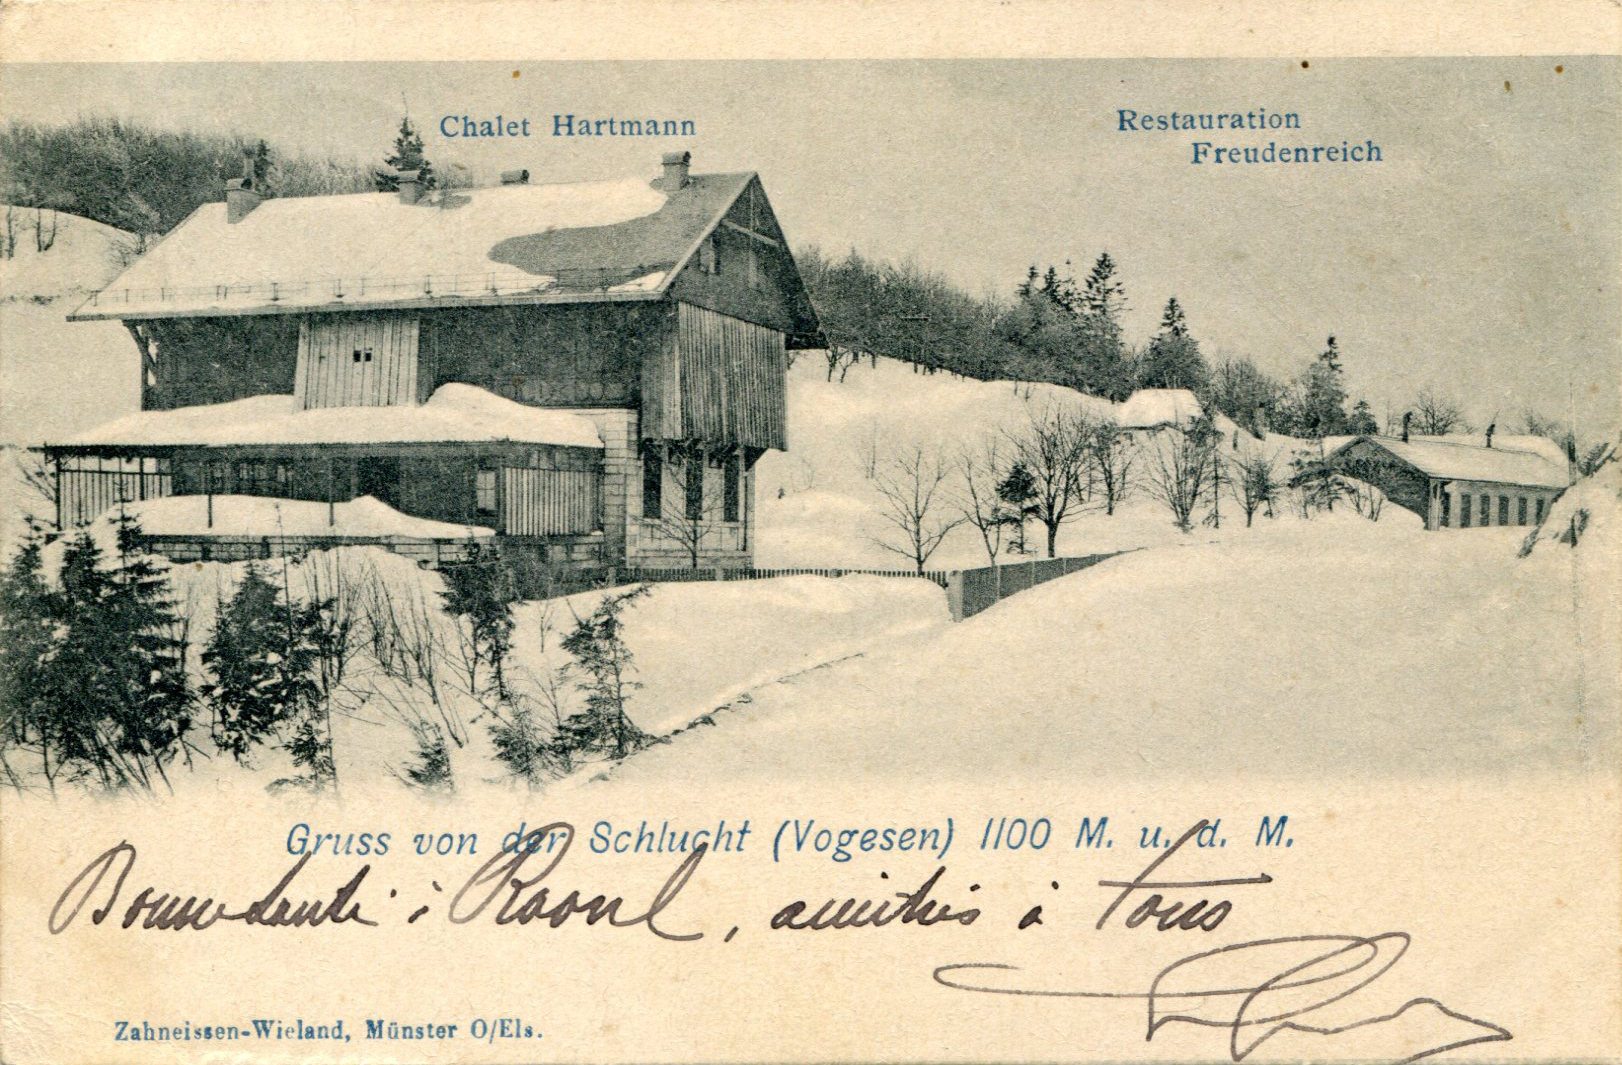 Chalet Hartmann
Restauration
Freudenreich
Gruss von der Schlucht (Vogesen) 1100 M. u. d. M.
Bonne santé à Raoul, amitiés à tous
Zahneissen-Wieland, Münster O/Els.